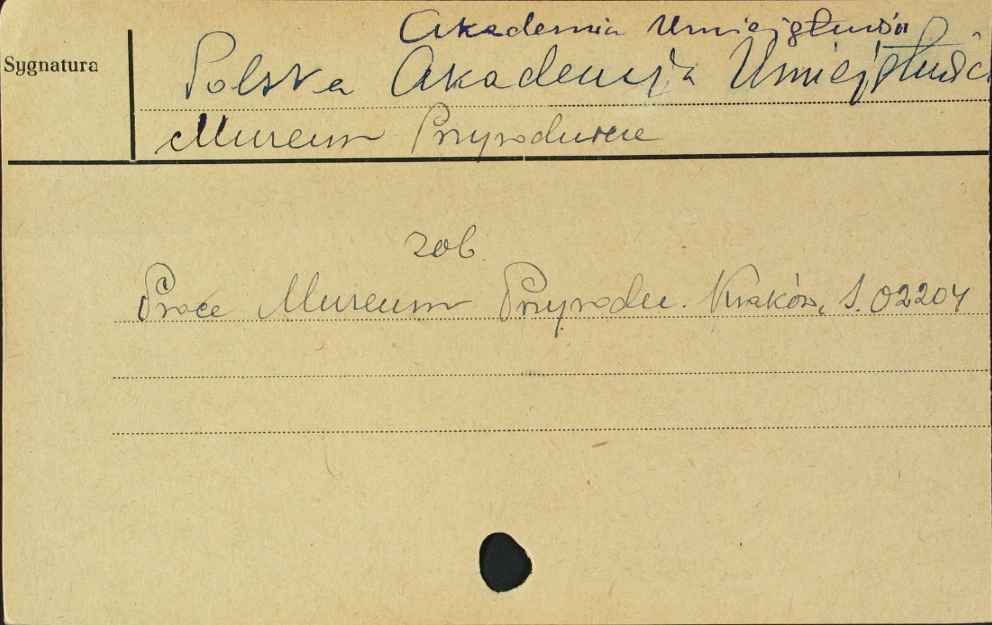 Akademia Umiejętnośc
Sygnatura
Polska Akademja Umiejętności
Museum Przyrodnicze
zob.
Prace Museum Przyrodn. Kraków, S. 02204